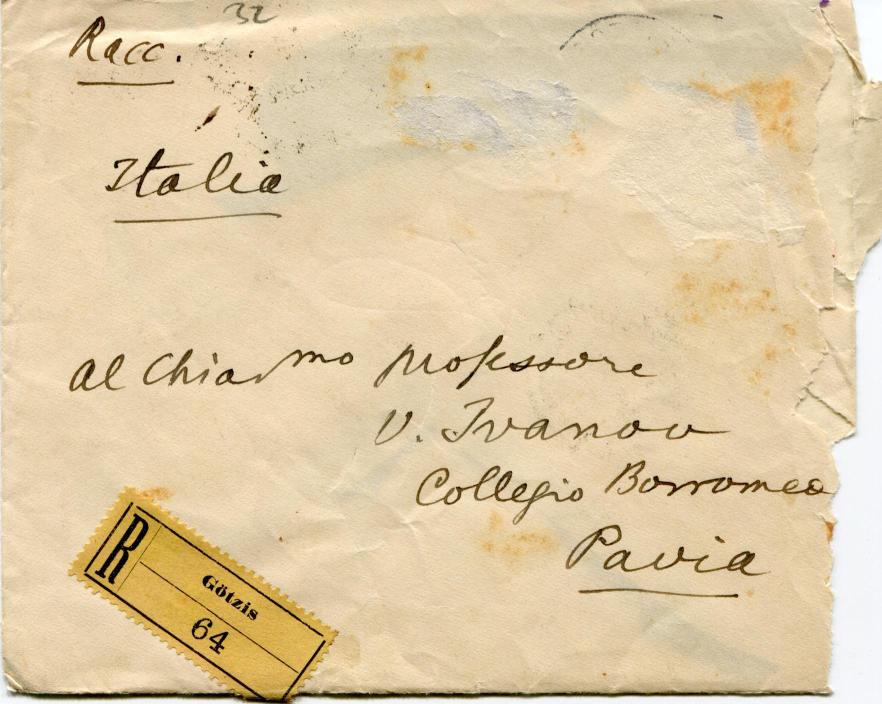 32
Racc.
Italia
Al Chiarmo professore
V. Ivanov
Collegio Borromeo
Pavia
R
Götzis
64